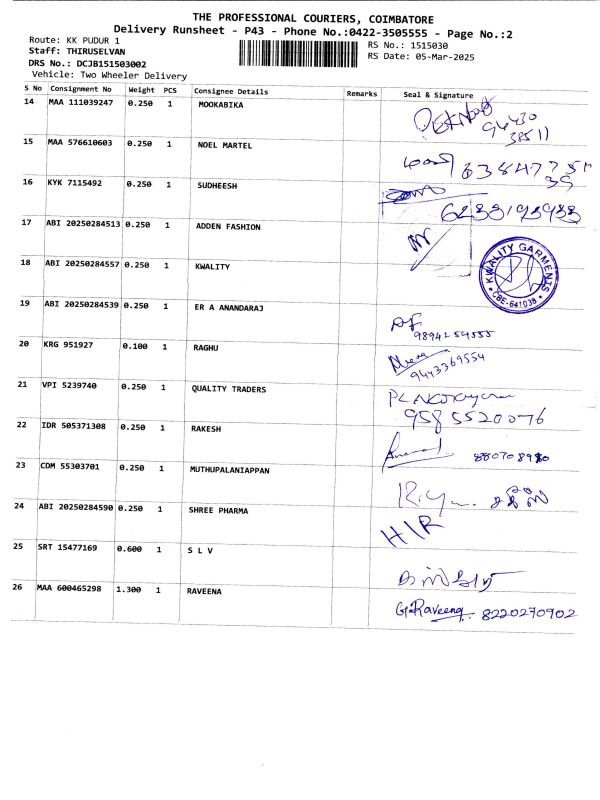 THE PROFESSIONAL COURIERS, COIMBATORE
Delivery Runsheet - P43 - Phone No.:0422-3505555 - Page No.:2
Route: KK PUDUR 1
RS No.: 1515030
Staff: THIRUSELVAN
RS Date: 05-Mar-2025
DRS No.: DCJB151503002
Vehicle: Two Wheeler Delivery
S No Consignment No Weight PCS Consignee Details Remarks Seal & Signature
14 MAA 111039247 0.250 1 MOOKABIKA
15 MAA 576610603 0.250 1 NOEL MARTEL
16 KYK 7115492 0.250 1 SUDHEESH
17 ABI 20250284513 0.250 1 ADDEN FASHION
18 ABI 20250284557 0.250 1 KWALITY
KWALITY GARMENTS
CBE-641038
19 ABI 20250284539 0.250 1 ER A ANANDARAJ
20 KRG 951927 0.100 1 RAGHU
9443369554
21 VPI 5239740 0.250 1 QUALITY TRADERS
9585520076
22 IDR 505371308 0.250 1 RAKESH
23 CDM 55303701 0.250 1 MUTHUPALANIAPPAN
24 ABI 20250284590 0.250 1 SHREE PHARMA
H/R
25 SRT 15477169 0.600 1 S L V
26 MAA 600465298 1.300 1 RAVEENA
Raveena 8220270902